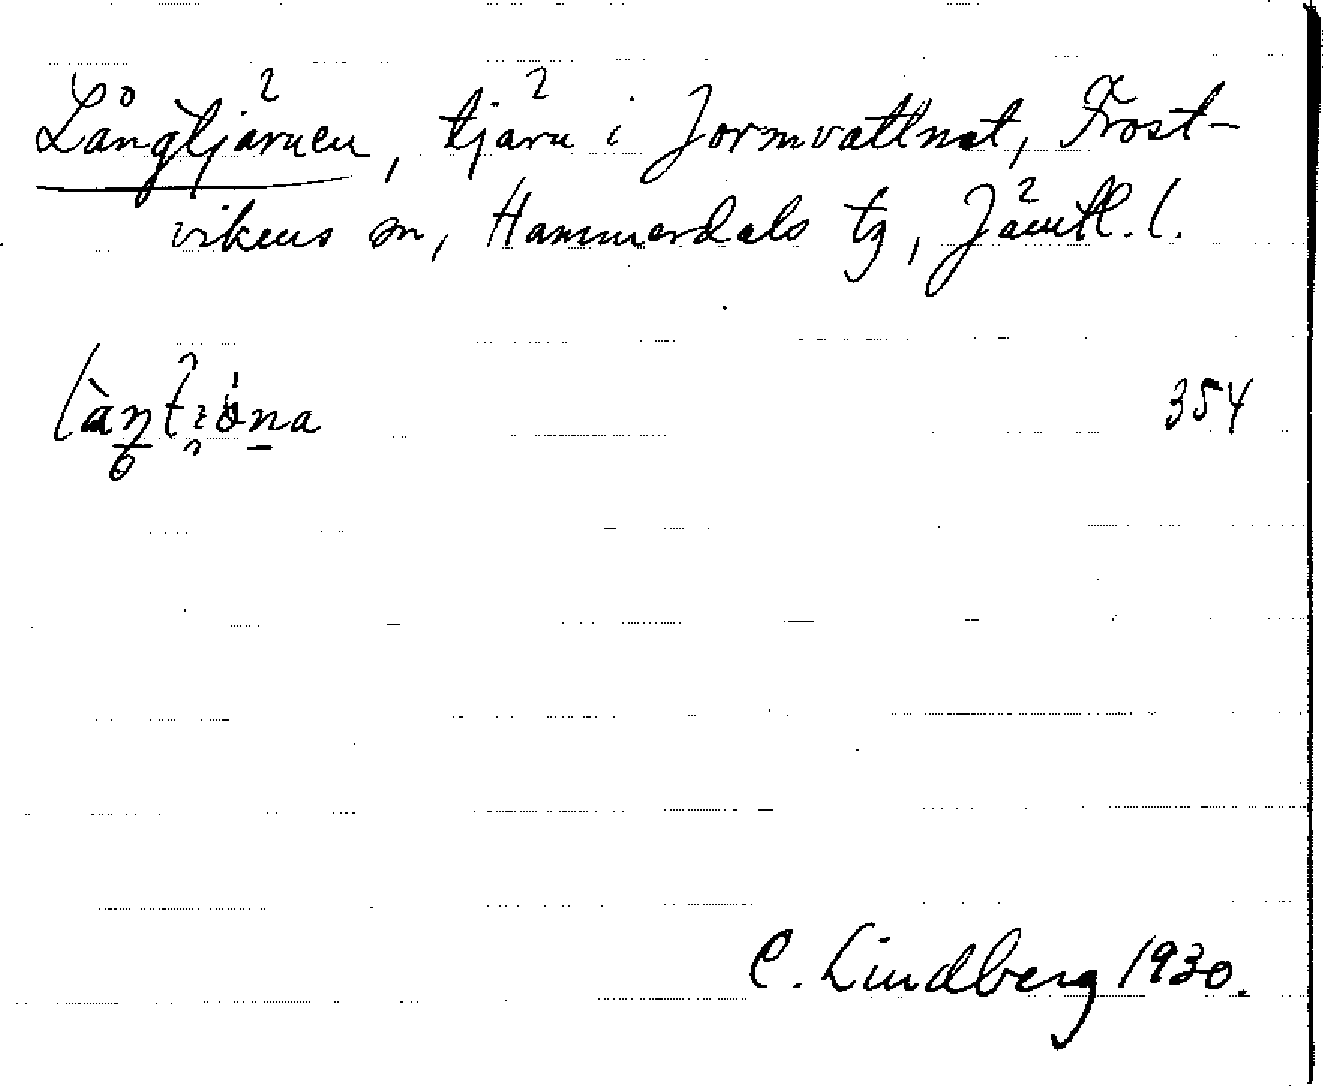 Långtjärnen, tjärn i Jormvattnet, Frost-
vikens sn, Hammerdals tg, Jämtl. l.
354
C. Lindberg 1930.